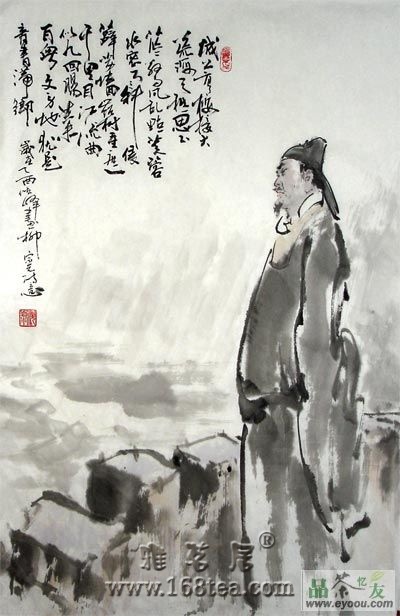 城上高楼接大
荒海天愁思正
茫茫惊风乱飐芙蓉
水密雨斜侵
薜荔墙岭树重遮
千里目江流曲
似九回肠共来
百粤文身地犹自
音书滞一乡
岁在乙酉 峰画柳宗元诗意
雅茗居®
www.168tea.com
品茶忆友
www.eyoou.com